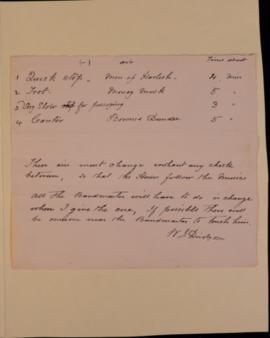 (-) air Time about
1 Quick step - Men of Harlech - 2 min
2 Trot Money Musk 5 "
3 for passaging 3 "
4 Canter Bonnie Dundee 5 "
There are must change without any check
between, so that the Horses follow the Music
All the Bandmaster will have to do is change
when I give the one, If possible there will
be someone near the Bandmaster to touch him.